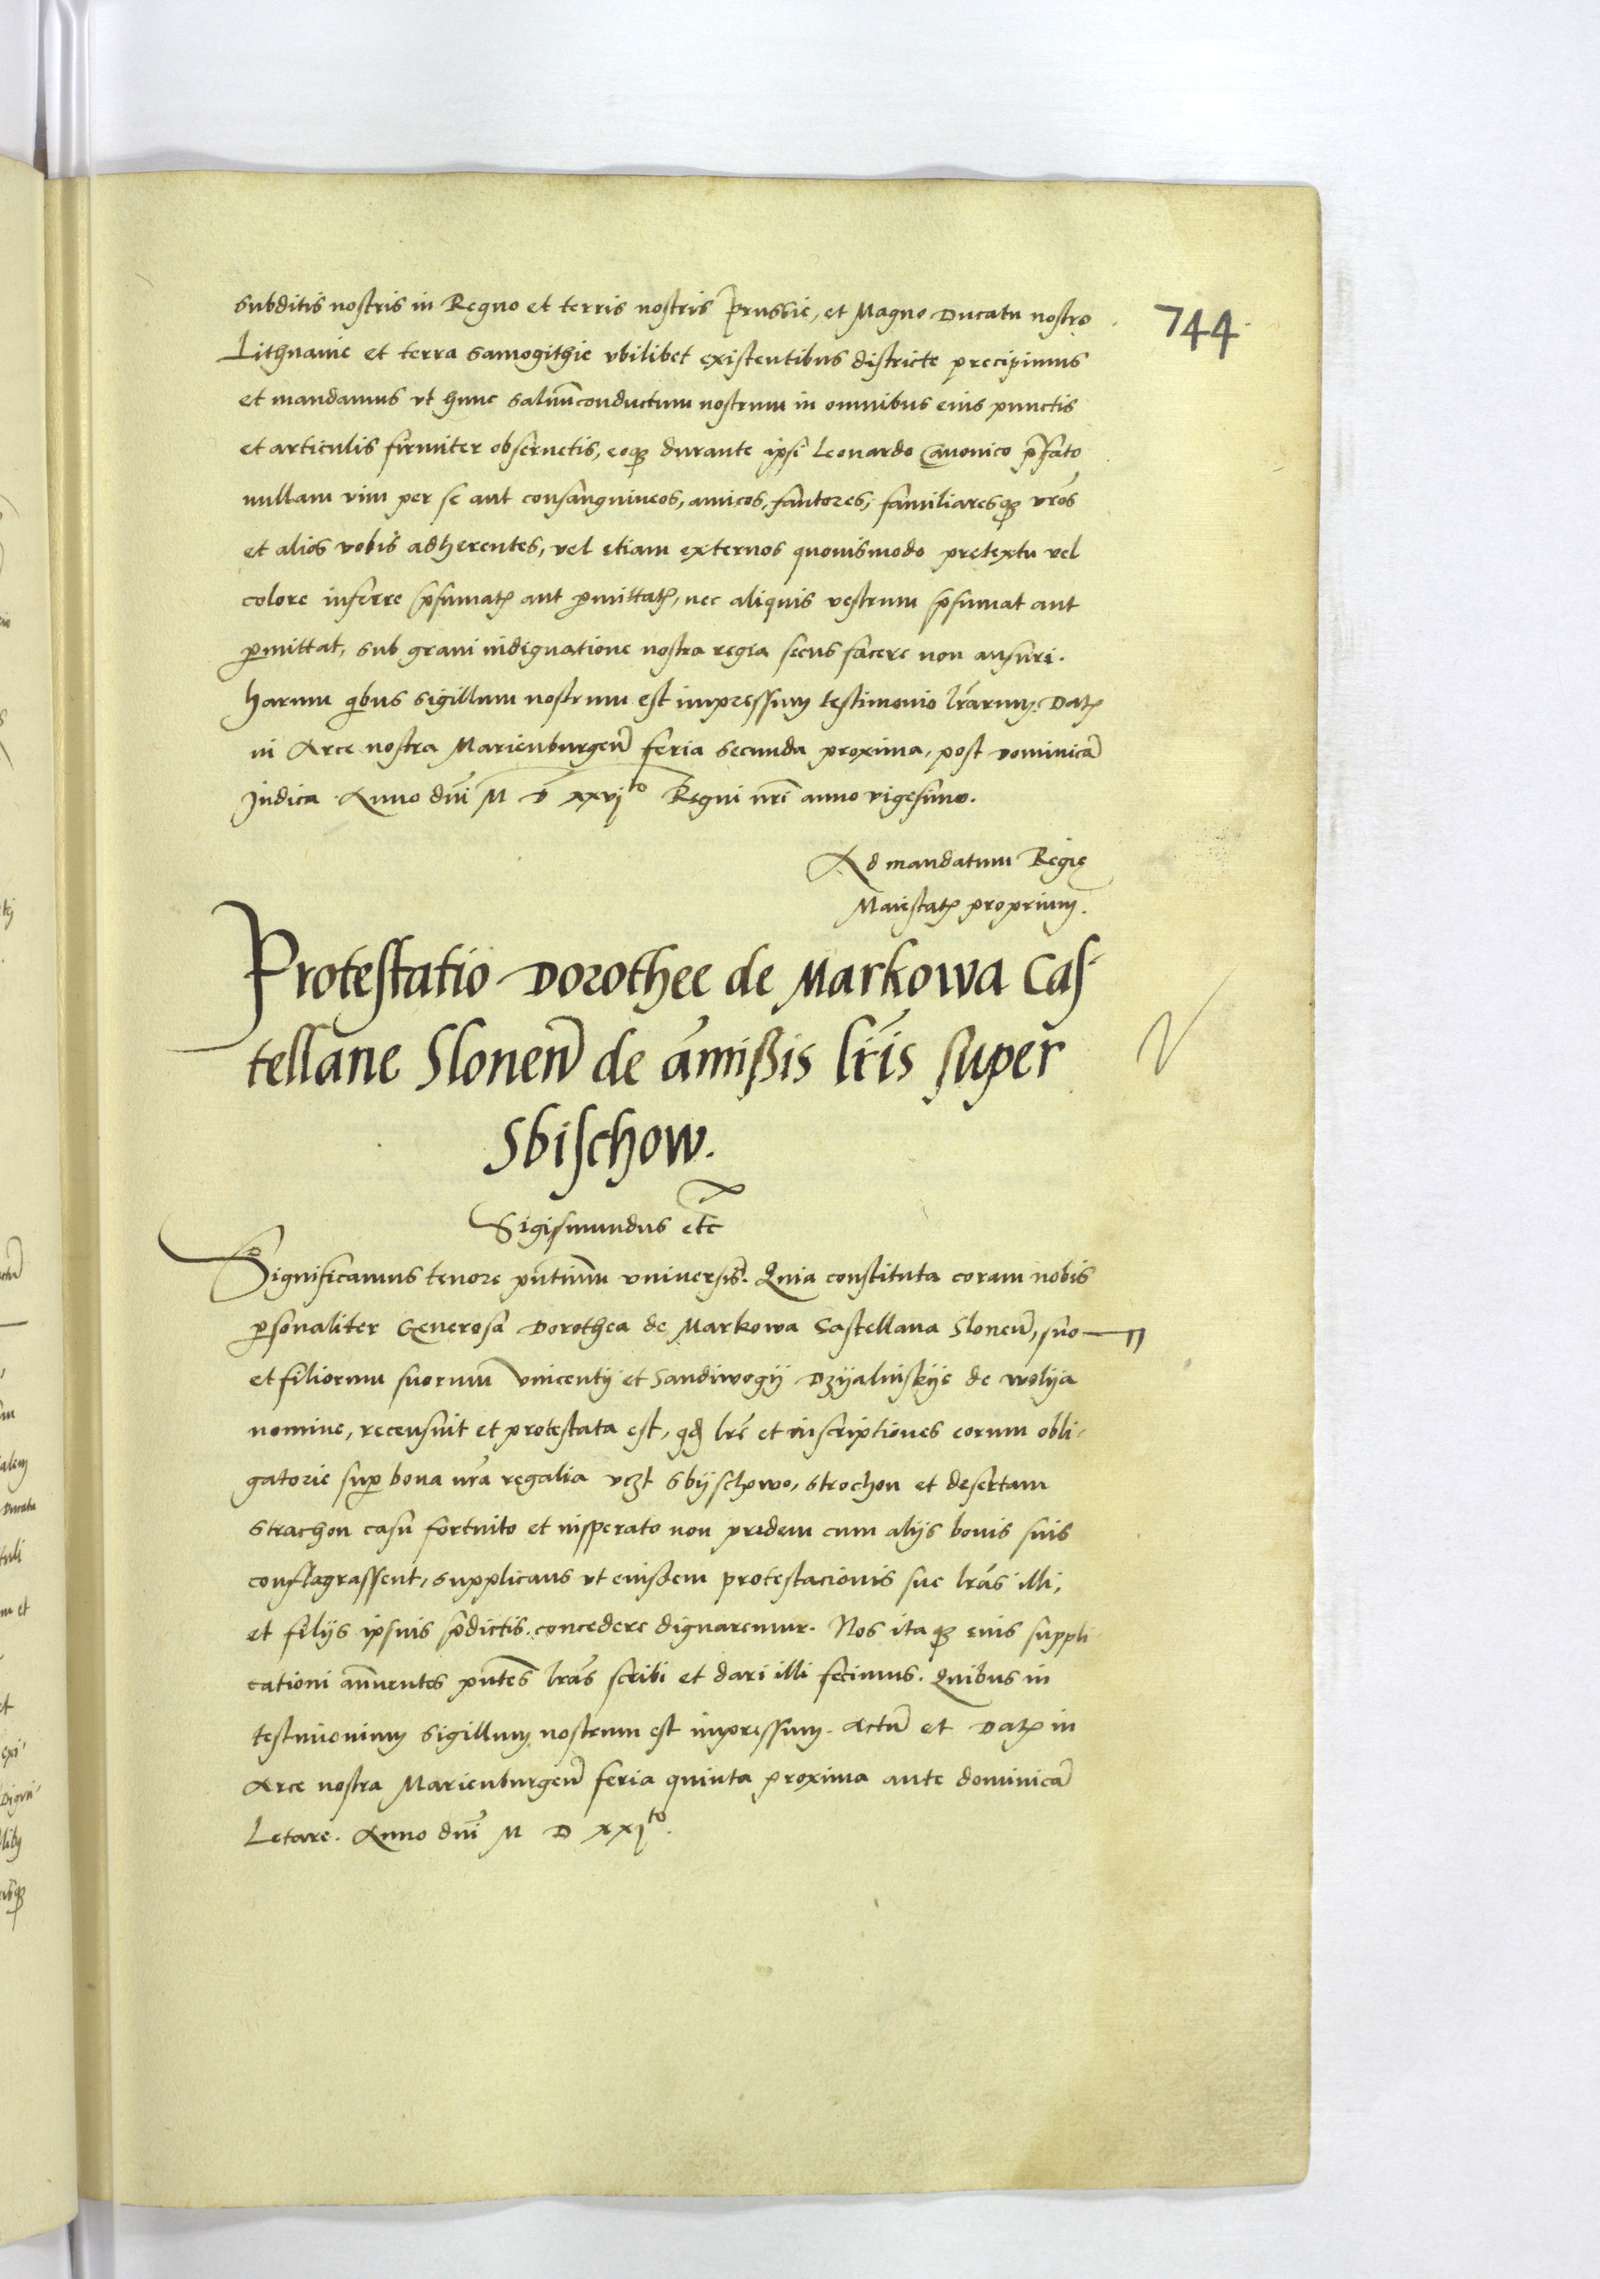 744
subditis nostris in Regno et terris nostris Prussie, et Magno Ducatu nostro
Lithuanie et terra Samogithie vbilibet existentibus districte precipimus
et mandamus vt hunc saluũconductum nostrum in omnibus eius punctis
et articulis firmiter obseruetis, eoqꝫ durante ipsi Leonardo Canonico p̃fato
nullam vim per se aut consanguineos, amicos, fautores, familiaresqꝫ vr̃os
et alios vobis adherentes, vel etiam externos quouismodo pretextu vel
colore inferre p̃sumatꝭ aut ꝑmittatꝭ, nec aliquis vestrum p̃sumat aut
ꝑmittat, sub graui indignatione nostra regia secus facere non ausuri.
Harum qibus sigillum nostrum est impressum testimonio lr̃arum. Datꝭ
in Arce nostra Marienburgen̄ feria secunda proxima, post dominicā
Judica Anno dn̄i M D xxvjto Regni nr̃i anno vigesimo.
Ad mandatum Regię
Maiestatꝭ proprium.
Protestatio Dorothee de Markowa Cas-
tellane Slonen̄ de amißis lr̃is super
Sbischow.
Sigismundus etc̃
Significamus tenore pn̄tium vniuersis. Quia constituta coram nobis
ꝑsonaliter Generosa Dorothea de Markowa Castellana Slonen̄, suo
et filiorum suorum Vincentij et Sandiwogij Dzyalinskije de wolija
nomine, recensuit et protestata est, qd̃ lr̃e et inscriptiones eorum obli-
gatorie suꝑ bona nr̃a regalia vczt Sbijschowo, Strochon et desertam
Strachon casu fortuito et insperato non pridem cum alijs bonis suis
conflagrassent, supplicans vt eiusdem protestacionis sue lr̃as illi,
et filijs ipsius p̃dictis concedere dignaremur. Nos itaqꝫ eius suppli
cationi annuentes pn̄tes lr̃as scribi et dari illi fecimus. Quibus in
testimonium Sigillum nostrum est impressum. Actū et Datꝭ in
Arce nostra Marienburgen̄ feria quinta proxima ante dominicā
Letare. Anno dn̄i M D xxjto.